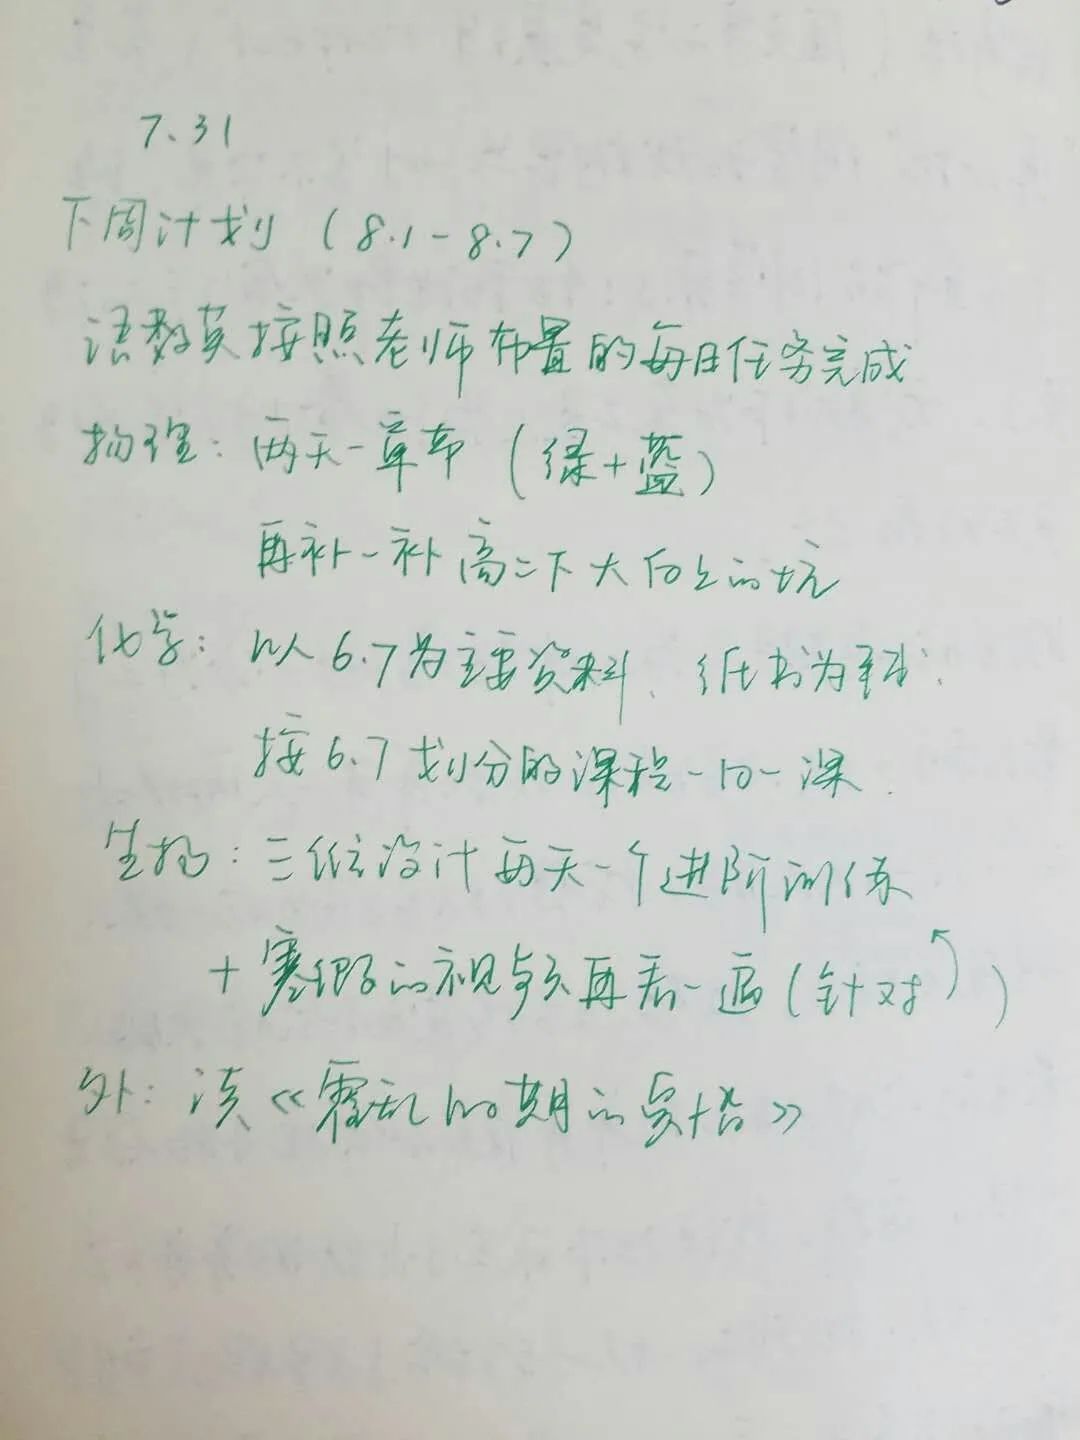 7.31
下周计划（8.1-8.7）
语数英按照老师布置的每日任务完成
物理：两天一章节（绿+蓝）
再补一补高二下大问上的坑
化学：以6.7为主要资料、纸书为
按6.7划分的课程一日一课.
生物：三维设计两天一个进阶训练
+ 的视频再看一遍（针对）
外：读《霍乱时期的爱情》